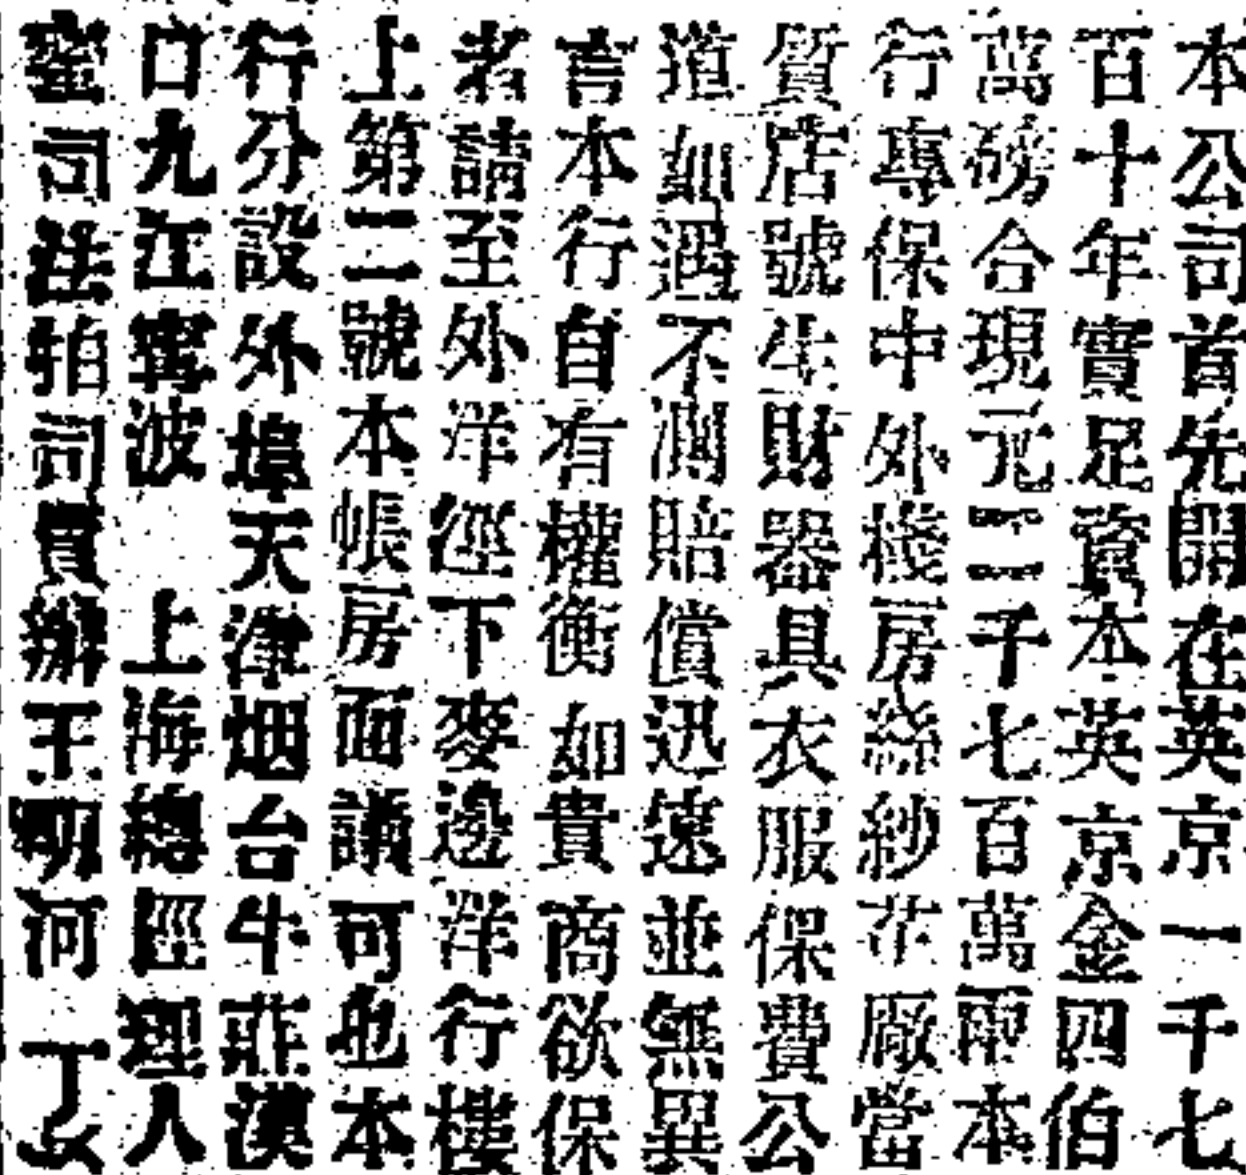 本公司首先開在英京一千七
百十年實足資本英京金四伯
萬磅合現元二千七百萬兩本
行專保中外棧房絲紗花廠當
質店號生財器具衣服保費公
道如遇不測賠償迅速並無異
言本行自有權衡如貴商欲保
者請至外洋徑下麥邊洋行樓
上第二號本帳房面議可也本
行分設外埠天津烟台牛莊漢
口九江寗波 上海總經理人
司法拍司買辦王明河